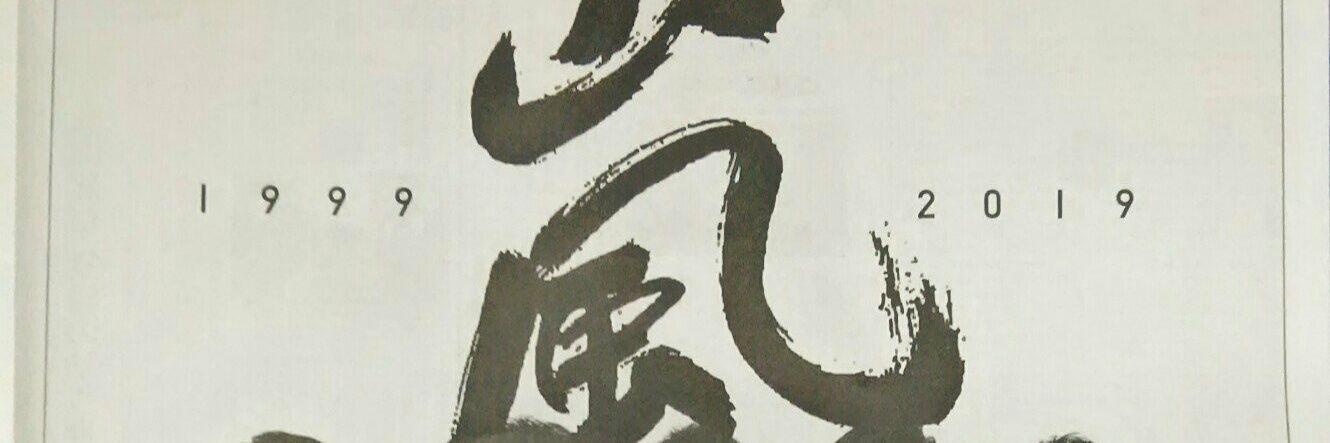 嵐
1999 2019